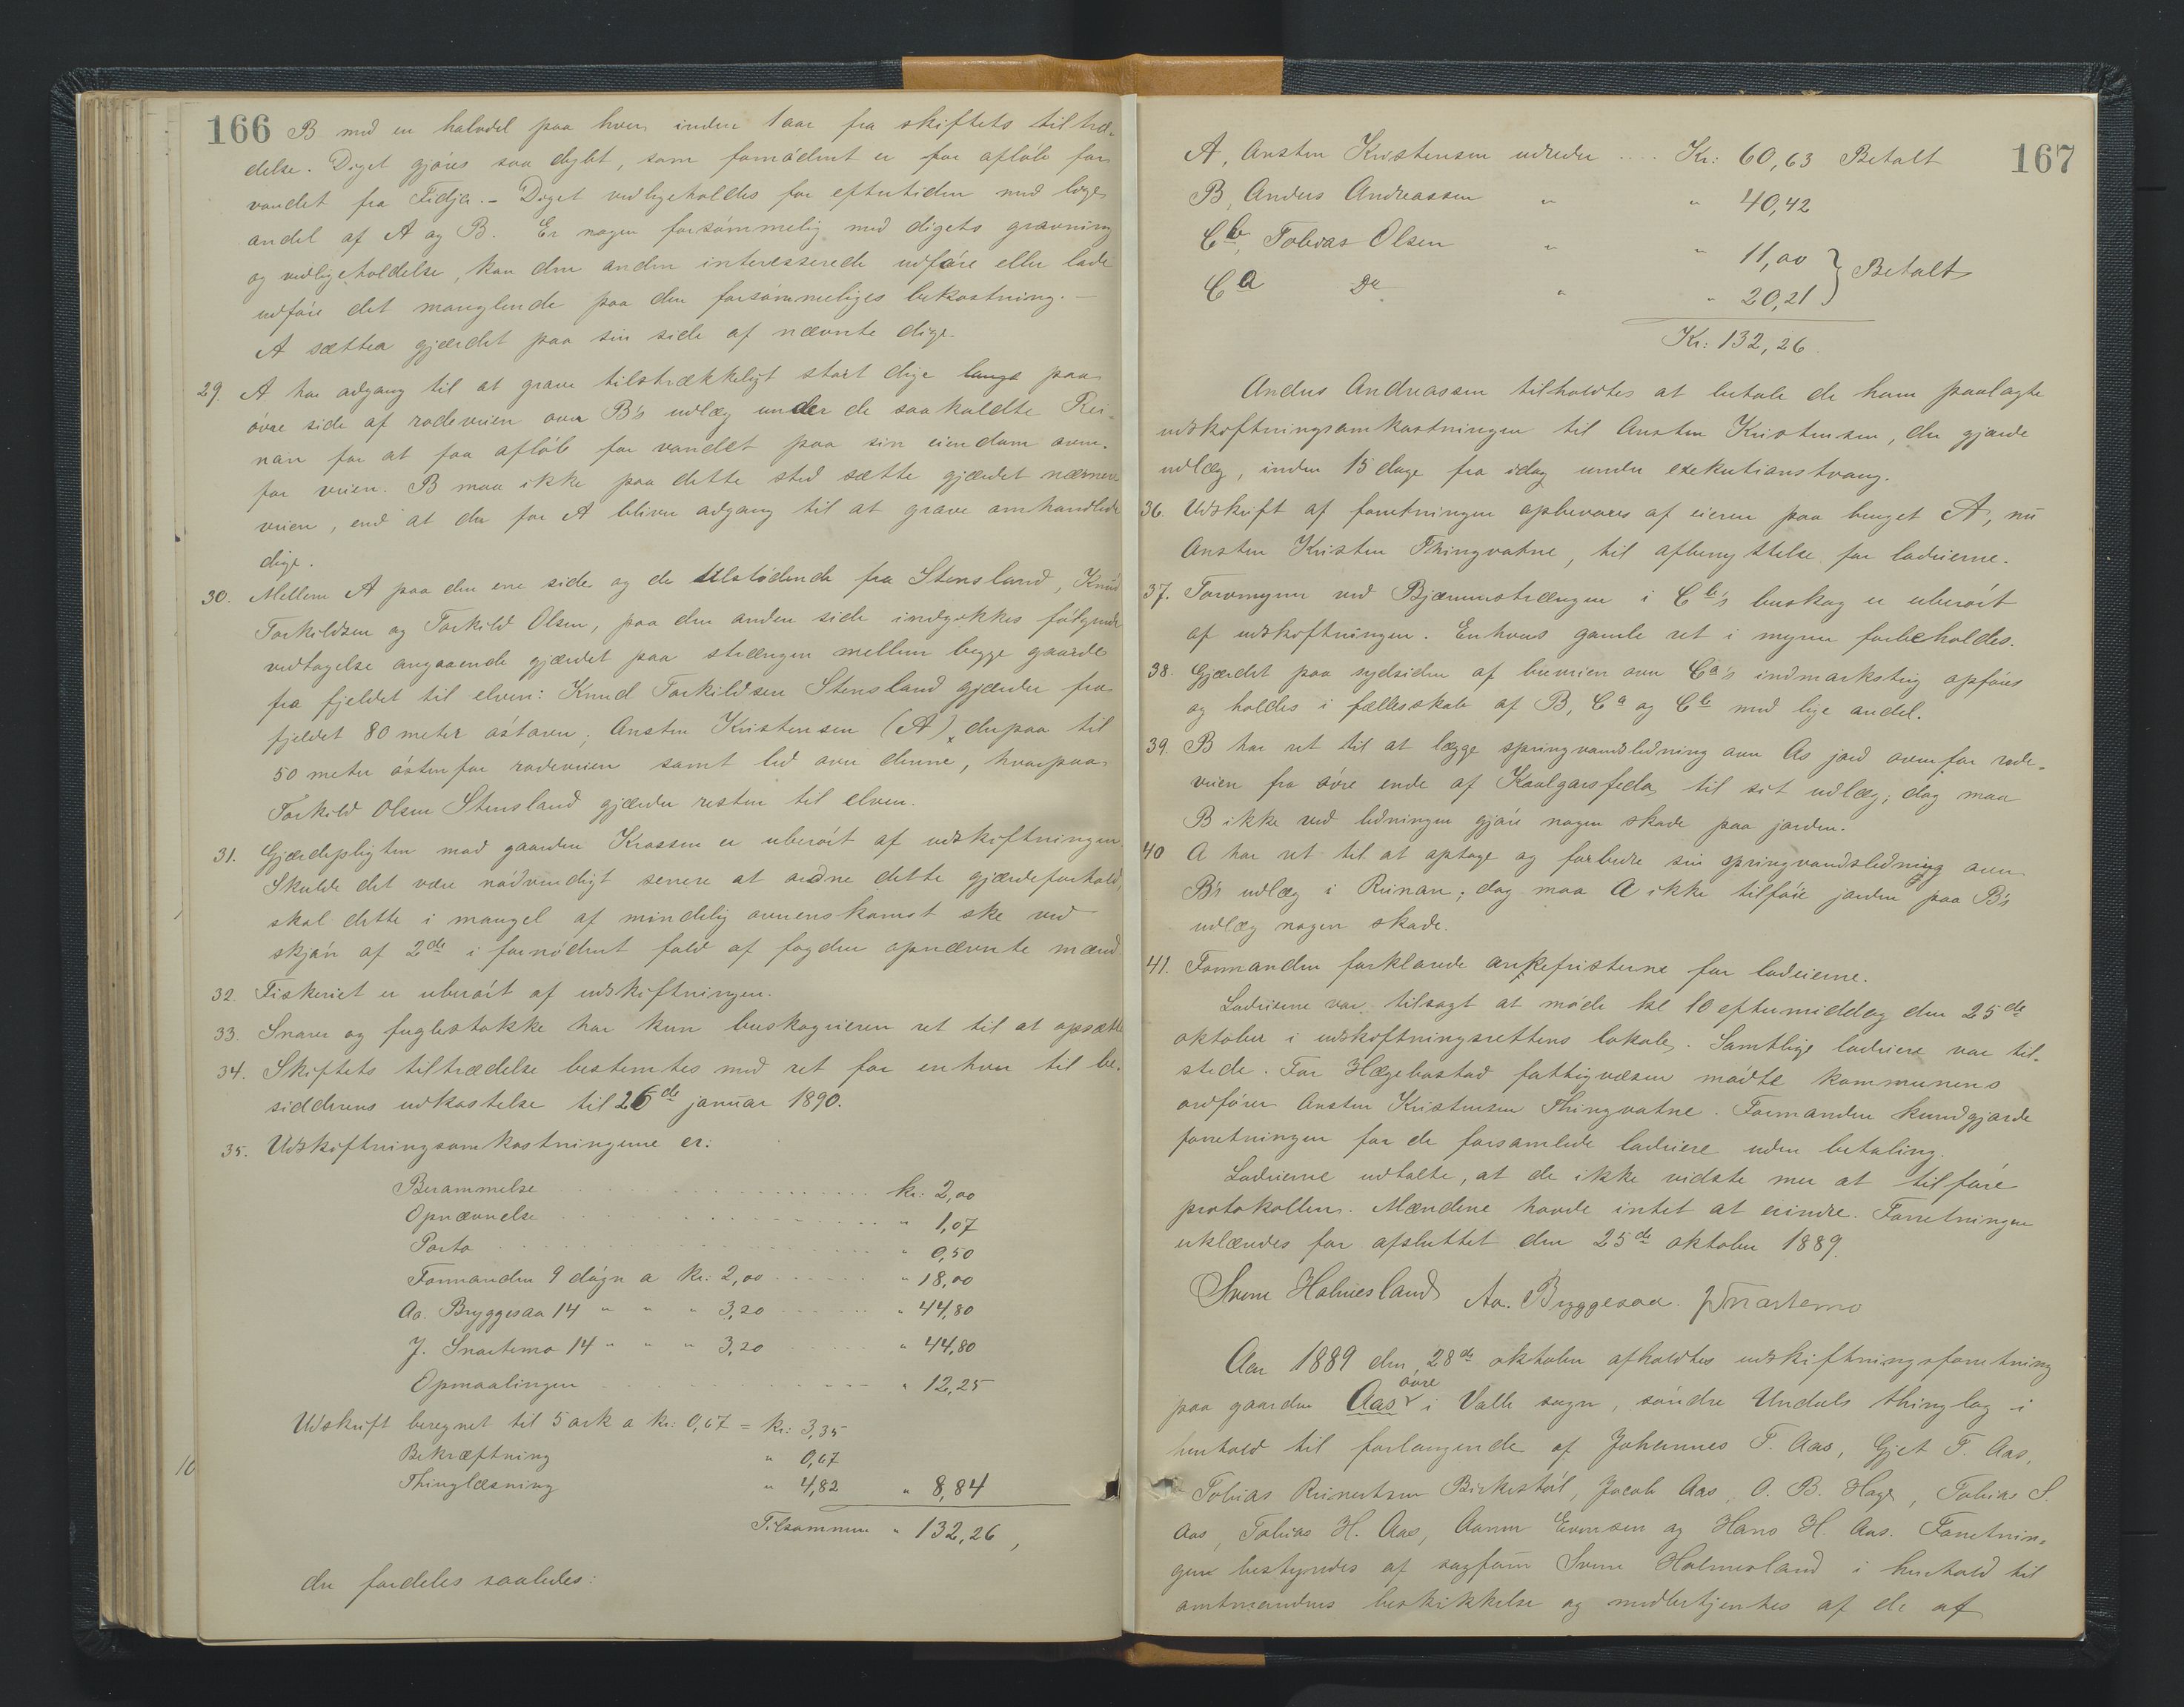 166 B med en halvdel paa hver inden 1 aar fra skiftets tiltræ-
delse. Diget gjøres saa dybt, som fornødent er for afløb for
vandet fra Fidja. - Diget vedligeholdes for eftertiden med lige
andel af A og B. Er nogen forsømmelig med digets gravning
og vedligeholdelse, kan den anden interesserede udføre eller lade
udføre det manglende paa den forsømmeliges bekostning. -
A sætter gjærdet paa sin side af nævnte dige.
29. A har adgang til at grave tilstrækkeligt stort dige langs paa
øvre side af rodeveien over B's udlæg under de saakaldte Rei-
nan for at faa afløb for vandet paa sin eiendom oven-
for veien. B maa ikke paa dette sted sætte gjærdet nærmere
veien, end at der for A bliver adgang til at grave omhandlede
dige.
30. Mellem A paa den ene side og de tilstødende fra Stensland, Knud
Torkildsen og Torkild Olsen, paa den anden side indgikkes følgende
vedtagelse angaaende gjærdet paa strængen mellem begge gaarde
fra fjeldet til elven: Knud Torkildsen Stensland gjærder fra
fjeldet 80 meter østover, Ansten Kristensen (A) derpaa til
50 meter østenfor rodeveien samt led over denne, hvorpaa
Torkild Olsen Stensland gjærder resten til elven.
31. Gjærdepligten mod gaarden Krossen er uberørt af udskiftningen.
Skulde det være nødvendigt senere at ordne dette gjærdeforhold,
skal dette i mangel af mindelig overenskomst ske ved
skjøn af 2de i fornødent fald af fogden opnævnte mænd.
32. Fiskeriet er uberørt af udskiftningen.
33. Snarer og fuglestokke har kun buskogeieren ret til at opsætte
34. Skiftets tiltrædelse bestemtes med ret for enhver til be-
sidderens udkastelse til 26de januar 1890.
35. Udskiftningsomkostningerne er:
Berammelse kr: 2,00
Opnævnelse " 1,07
Porto " 0,50
Formanden 9 døgn a kr: 2,00 " 18,00
Aa. Bryggesaa 14 " " " 3,20 " 44,80
J. Snartemo 14 " " " 3,20 " 44,80
Opmaalingen " 12,25
Udskrift beregnet til 5 ark a kr: 0,67 = kr: 3,35
Bekræftning " 0,67
Thinglæsning " 4,82 " 8,84
Tilsammen " 132,26,
der fordeles saaledes:
167
A, Ansten Kristensen udreder .... Kr: 60,63 Betalt
B, Anders Andreassen " " 40,42
Cb, Tobias Olsen " " 11,00
Ca Do " " 20,21 } Betalt
Kr: 132,26
Anders Andreassen tilholdtes at betale de ham paalagte
udskiftningsomkostninger til Ansten Kristensen, der gjorde
udlæg, inden 15 dage fra idag under exekutionstvang.
36. Udskrift af forretningen opbevares af eieren paa bruget A, nu
Ansten Kristen Thingvatne, til afbenyttelse for lodeierne.
37. Torvmyren ved Bjørnnstrængen i Cb's buskog er uberørt
af udskiftningen. Enhvers gamle ret i myren forbeholdes.
38. Gjærdet paa sydsiden af buveien over Ca's indmarksteig opføres
og holdes i fællesskab af B, Ca og Cb med lige andel.
39. B har ret til at lægge springvandsledning over As jord ovenfor rode-
veien fra øvre ende af Kaalgarsfeda til sit udlæg; dog maa
B ikke ved ledningen gjøre nogen skade paa jorden.
40 A har ret til at optage og forbedre sin springvandsledning over
B's udlæg i Reinan; dog maa A ikke tilføie jorden paa B's
udlæg nogen skade.
41. Formanden forklarede ankefristerne for lodeierne.
Lodeierne var tilsagt at møde kl 10 eftermiddag den 25de
oktober i udskiftningsrettens lokale. Samtlige lodeiere var til-
stede. For Hægebostad fattigvæsen mødte kommunens
ordfører Ansten Kristensen Thingvatne. Formanden kundgjorde
forretningen for de forsamlede lodeiere uden betaling.
Lodeierne udtalte, at de ikke vidste mer at tilføre
protokollen. Mændene havde intet at erindre. Forretningen
erklæredes for afsluttet den 25de oktober 1889.
Svenn Holmesland Aa. Bryggesaa. J Snartemo
Aar 1889 den 28de oktober afholdtes udskiftningsforretning
øvre
paa gaarden Aas i Valle sogn, søndre Undals thinglag i
henhold til forlangende af Johannes T. Aas, Gjert T. Aas,
Tobias Reinertsen Birkestøl, Jacob Aas, O. B. Hage, Tobias S.
Aas, Tobias H. Aas, Aanen Evensen og Hans H. Aas. Forretnin-
gen bestyredes af sagfører Svenn Holmesland i henhold til
amtmandens beskikkelse og medbetjentes af de af